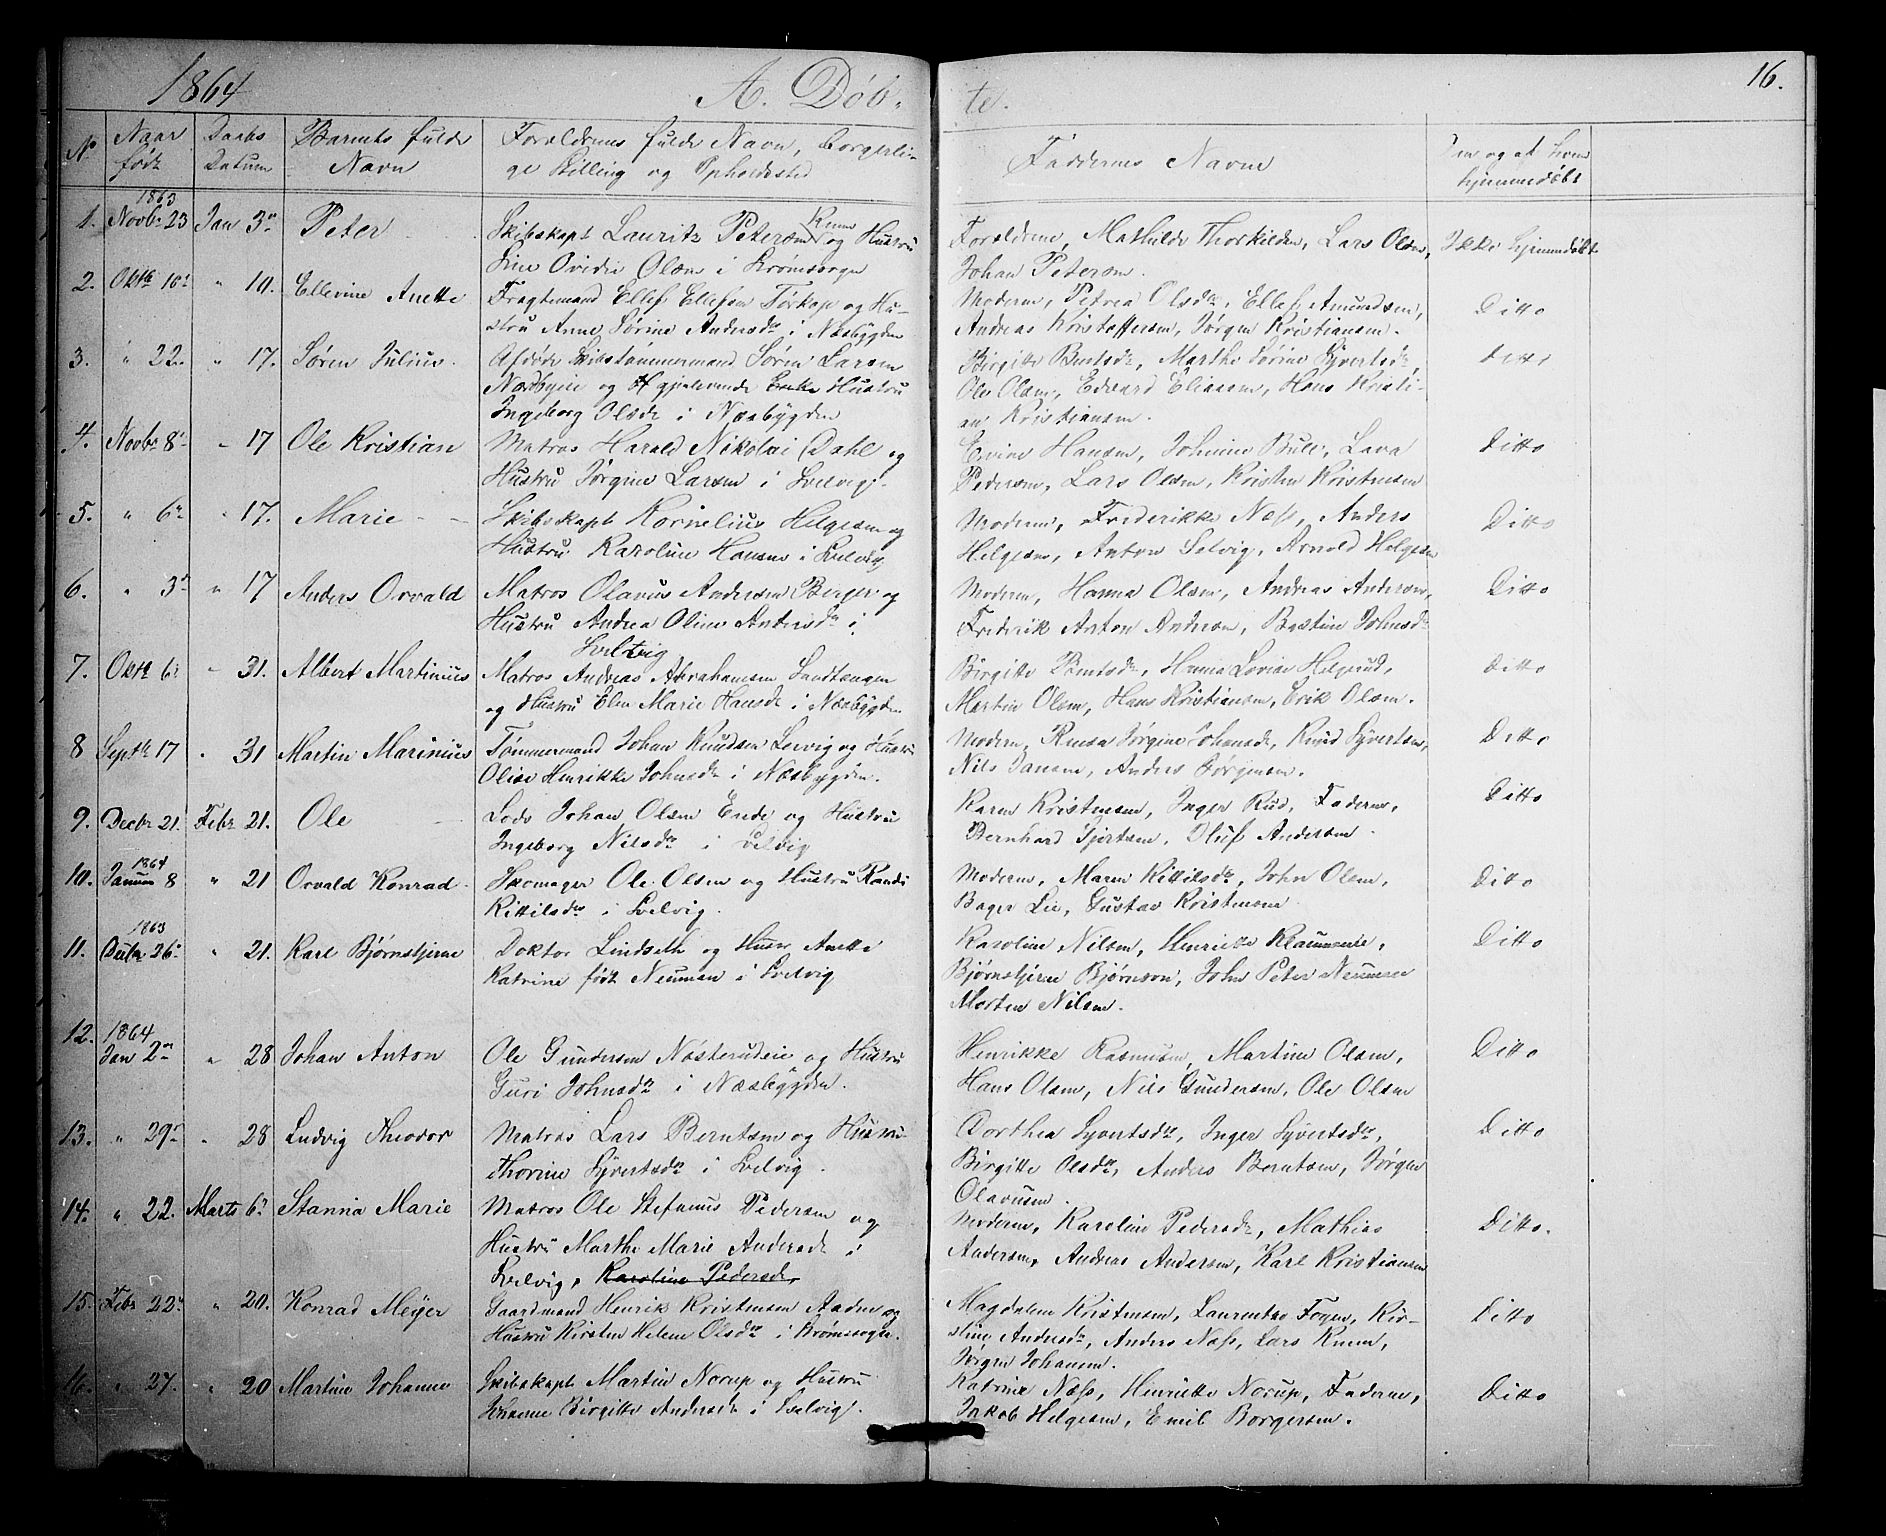 1864 A. Døb-
te. 16.
No Naar født Daabs Datum Barnets fulde Navn Forældrenes fulde Navn, borgerli-
ge Stilling og Opholdssted
Faddernes Navne
Om og af hvem hjemmedøbt
1863
1. Novbr 23 Jan 3die Peter Skibskapt Lauritz Petersen Knem og Hustru
Line Ovidie Olsen i Strømsogn
Forældrene, Mathilde Thorkildsen, Lars Olsen, Ikke hjemmedøbt
Johan Petersen.
2. Oktbr 10de " 10. Ellevine Anette Fragtemand Ellef Ellefsen Torkop og Hu-
stru Anne Sørine Andersdr i Næsbygden
Moderen, Petrea Olsdr, Ellef Amundsen, Ditto
Andreas Kristoffersen, Jørgen Kristiansen.
3. " 22. " 17. Søren Julius. Afdøde Skibstømmermand Søren Larsen
Næsbyeie og Hustru
Ingeborg Olsdr i Næsbygden
Birgitte Berntsdr, Marthe Sørine Syvertsdr, Ditto
Ole Olsen, Edvard Eliassen, Hans Kristi-
an Kristiansen.
4. Novbr 8de " 17 Ole Kristian Matros Harald Nikolai Dahl og
Hustru Jørgine Larsen i Svelvig.
Hansen, Johnine Bull, Lava Ditto
Pedersen, Lars Olsen, Kristen Kristensen
5. " 6te " 17. Marie Skibskapt Kornelius Helgesen og
Hustru Karoline Hansen i Svelvig
Moderen, Frederikke Næss, Anders Ditto
Helgesen, Anton Selvig, Arnold Helgesen
6. " 3die " 17 Anders Osvald Matros Olavus Andersen Berger og
Hustru Andrea Oline Andersdr i
Svelvig
Moderen, Hanna Olsen, Andreas Andersen, Ditto
Frederik Anton Andersen, Bastine Johnsdr
7. Oktbr 6te " 31. Albert Martinius Matros Andreas Abrahamsen Sandtangen
og Hustru Elen Marie Hansdr i Næsbygden
Birgitte Berntsdr, Hanna Lovise Helgerud, Ditto
Martin Olsen, Hans Kristiansen, Erik Olsen.
8 Septbr 17 " 31 Martin Marinius Tømmermand Johan Knudsen Selvig og Hustru
Olise Henrikke Johnsdr i Næsbygden.
Moderen, Jørgine Johansdr, Knud Syvertsen, Ditto
Nils Jansen, Anders Jørgensen.
9. Decbr 21. Febr 21. Ole Lods Johan Olsen Ende og Hustru
Ingeborg Nilsdr i Svelvig
Karen Kristensen, Inger Rud, Faderen, Ditto
Bernhard Sjertsen, Oluf Andersen.
1864
10. Januar 8 " 21 Osvald Konrad. Skomager Ole Olsen og Hustru Randi
Kittilsdr i Svelvig.
Moderen, Maren Kittilsdr, John Olsen, Ditto
Bager Lie, Gustav Kristensen
1863
11. Decbr 26de " 21. Karl Bjørnstjerne Doktor Lindseth og Hustru Anette
Katrine født Neuman i Svelvig
Karoline Nilsen, Henriette, Ditto
Bjørnstjerne Bjørnson, John Peter Neuman
Morten Nilsen.
12. 1864
Jan 2den " 28 Johan Anton Ole Gundersen Nøsterudeie og Hustru
Guri Johnsdr i Næsbygden.
Henrikke Rasmusen, Martine Olsen, Ditto
Hans Olsen, Nils Gundersen, Ole Olsen
13. " 29de " 28 Ludvig Theodor Matros Lars Berntsen og Hustru
Thorine Syvertsdr i Svelvig.
Dorthea Syvertsdr, Inger Syvertsdr, Ditto
Birgitte Olsdr, Anders Berntsen, Jørgen
Olavusen.
14. " 22. Marts 6te Stanna Marie Matros Ole Stefanus Pedersen og
Hustru Marthe Marie Andersdr i
Svelvig, Karoline Pedersdr,
Moderen, Karoline Pedersdr, Mathias Ditto.
Andersen, Andreas Andersen, Karl Kristiansen
15. Febr 22de " 20. Konrad Meÿer Gaardmand Henrik Kristensen Aasen og
Hustru Kirsten Helene Olsdr i Strømsogn.
Magdalene Kristensen, Laurentse Fogen, Kir- Ditto
stine Andersdr, Anders Næss, Lars Knem,
Jørgen Johansen.
16. " 27. " 20 Martine Johanne Skibskapt Martin Norup og Hustru
Johanne Birgitte Andersdr i Svelvig.
Katrine Næss, Henriette Norup, Faderen, Ditto
Jakob Helgesen, Emil Borgersen.